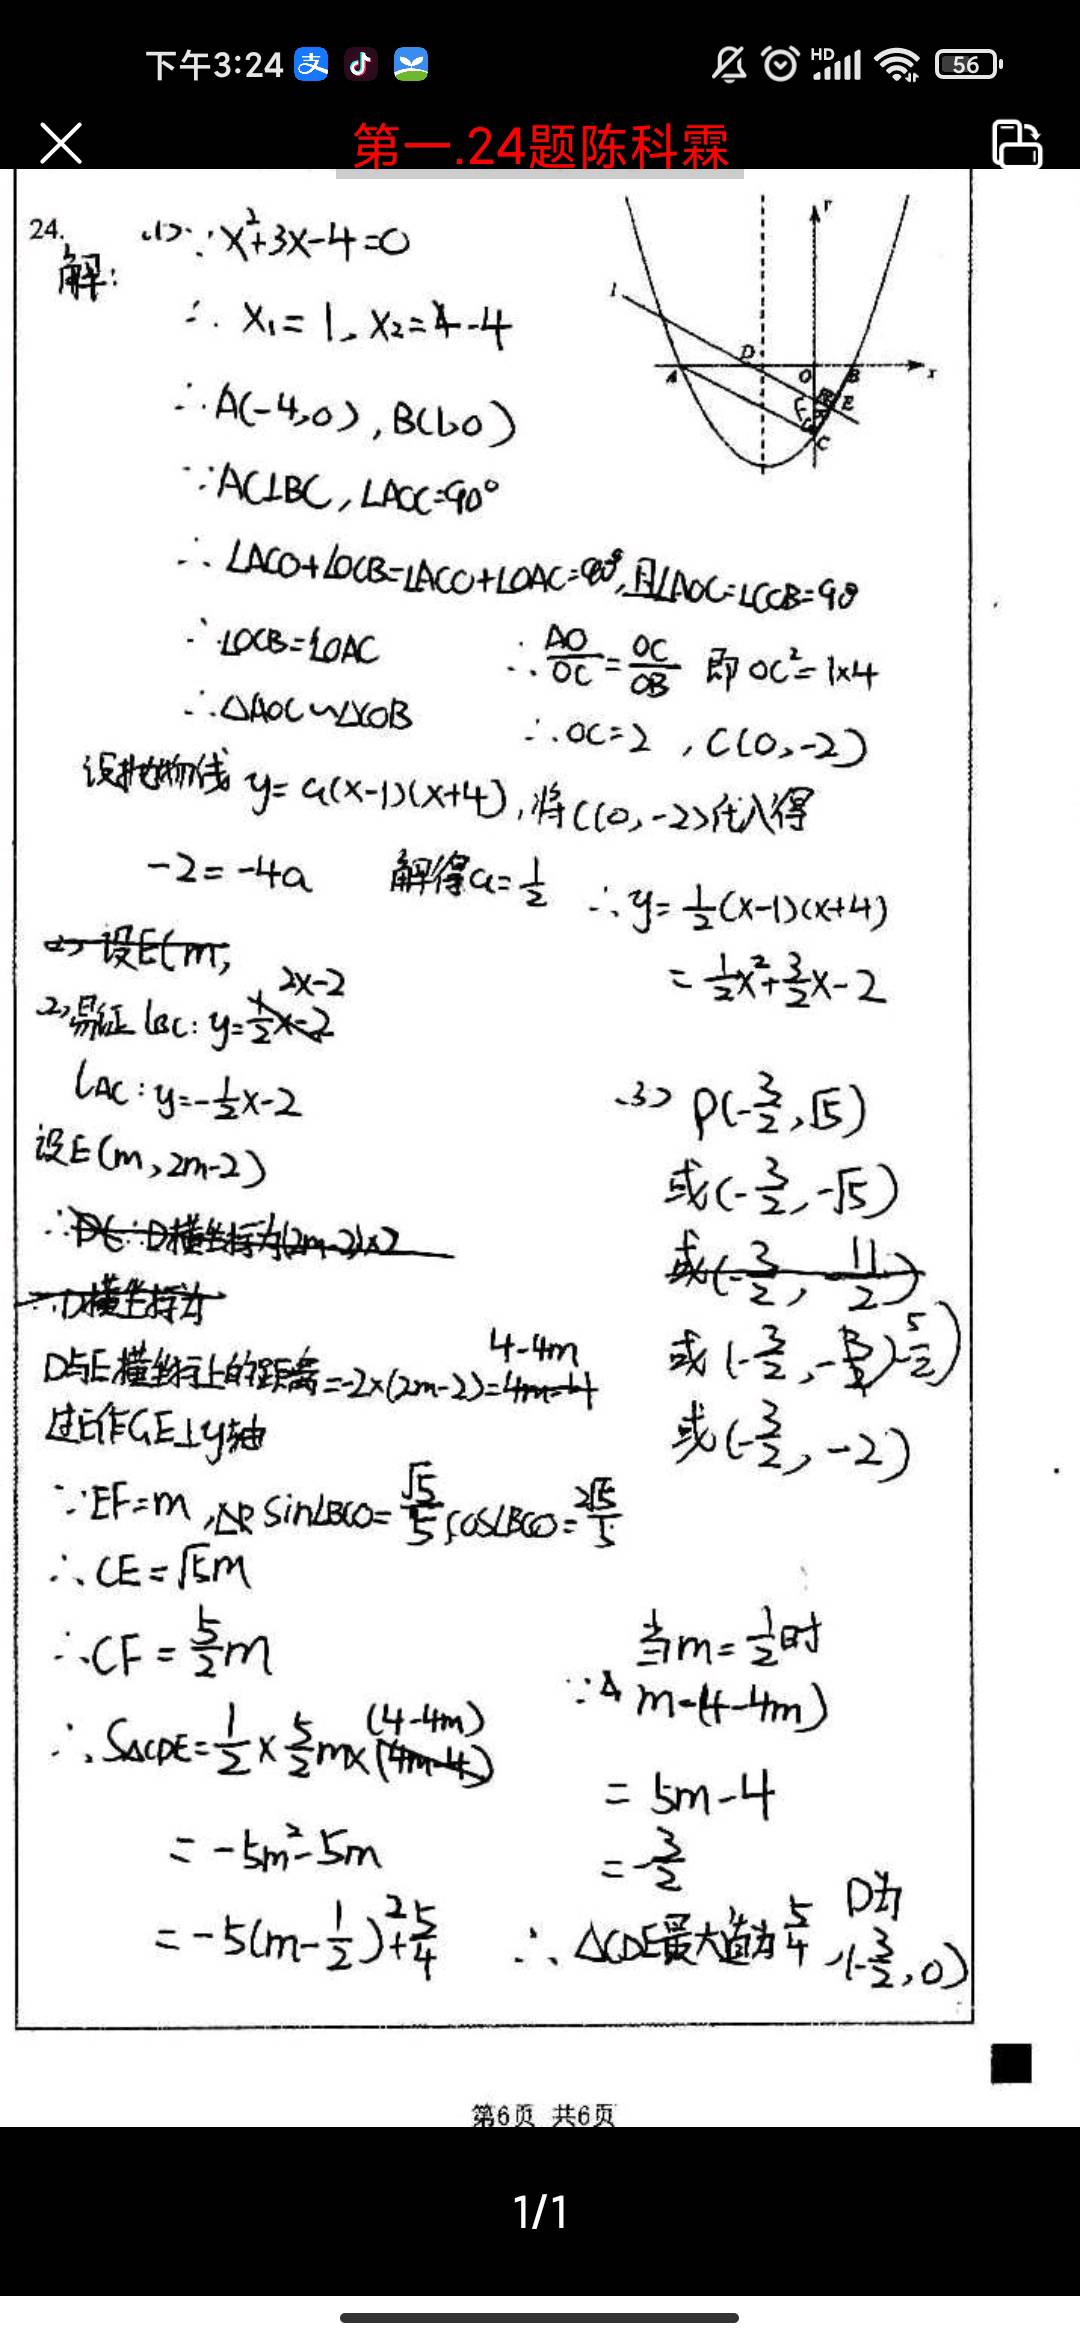 下午3:24
HD
56
第一.24题陈科霖
24.
解:
(1)∵x²+3x-4=0
∴ x₁=1, x₂=-4
∴A(-4,0), B(1,0)
∵AC⊥BC, ∠AOC=90°
∴ ∠ACO+∠OCB=∠ACO+∠OAC=90°,且∠AOC=∠COB=90°
∴∠OCB=∠OAC
∴△AOC∽△COB
∴AO/OC=OC/OB 即 OC²=1×4
∴OC=2, C(0,-2)
设抛物线 y=a(x-1)(x+4), 将C(0,-2)代入得
-2=-4a 解得a=1/2 ∴y=1/2(x-1)(x+4)
=1/2x²+3/2x-2
(2)设E(m,
(2)易证 lBC: y=2x-2
lAC: y=-1/2x-2
设E(m, 2m-2)
∴D横坐标为
D与E横坐标上的距离=-2×(2m-2)=4-4m
过E作GE⊥y轴
∵EF=m, sin∠BCO=√5/5, cos∠BCO=2√5/5
∴CE=√5m
∴CF=5/2m
∴S△CDE=1/2×5/2m×(4-4m)
=-5m²-5m
=-5(m-1/2)²+5/4
(3) P(-3/2,√5)
或(-3/2,-√5)
或(-3/2,-11/2)
或(-3/2,-5/2)
或(-3/2,-2)
当m=1/2时
∵ m-(4-4m)
=5m-4
=-3/2
∴△CDE最大值为5/4, D为(-3/2,0)
l
A
D
O
B
E
F
G
C
x
Y
第6页 共6页
1/1